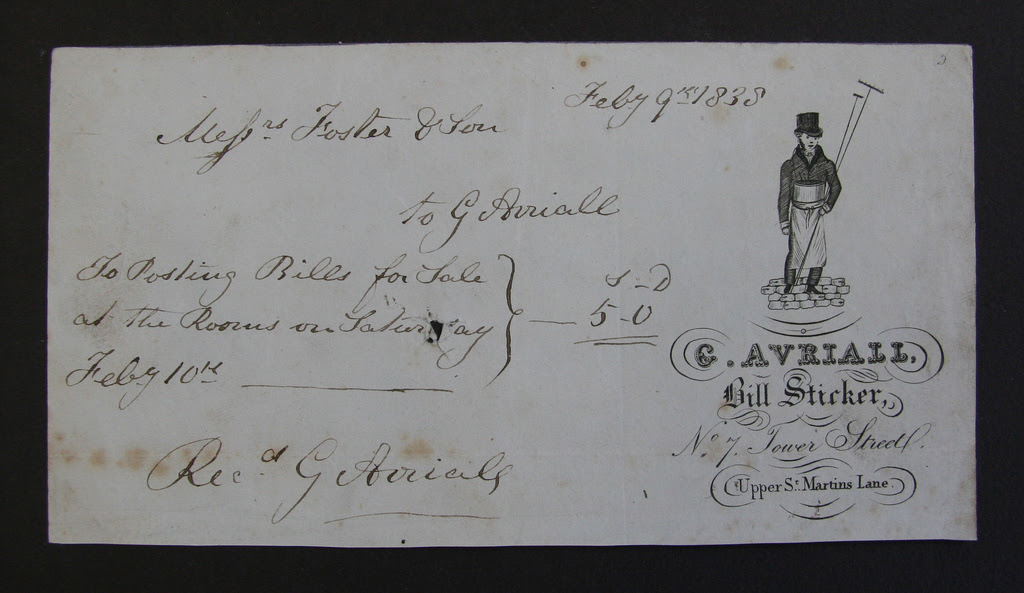 Feby 9th 1838
Messrs Foster & Son
to G Avriall
To Posting Bills for Sale
at the Rooms on Saturday
Feby 10th
S - D
5 - 0
Recd G Avriall
G. AVRIALL,
Bill Sticker,
No. 7. Tower Street.
Upper St. Martins Lane.